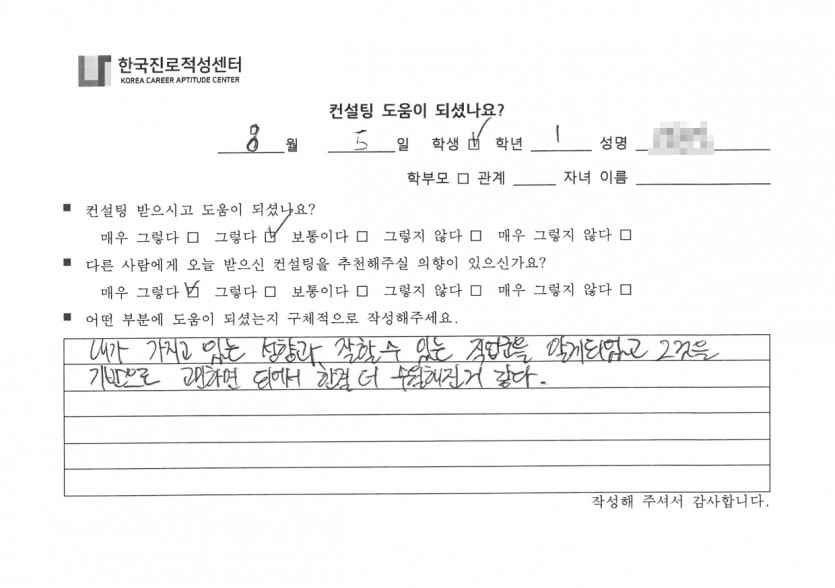 한국진로적성센터
KOREA CAREER APTITUDE CENTER
컨설팅 도움이 되셨나요?
8 월 5 일 학생 ☑ 학년 1 성명
학부모 □ 관계 자녀 이름
■ 컨설팅 받으시고 도움이 되셨나요?
매우 그렇다 □ 그렇다 ☑ 보통이다 □ 그렇지 않다 □ 매우 그렇지 않다 □
■ 다른 사람에게 오늘 받으신 컨설팅을 추천해주실 의향이 있으신가요?
매우 그렇다 ☑ 그렇다 □ 보통이다 □ 그렇지 않다 □ 매우 그렇지 않다 □
■ 어떤 부분에 도움이 되셨는지 구체적으로 작성해주세요.
내가 가지고 있는 성향과 잘할 수 있는 직업군을 알게되었고 그것을
기반으로 하면 되에서 한결 더 수월해진거 같다.
작성해 주셔서 감사합니다.